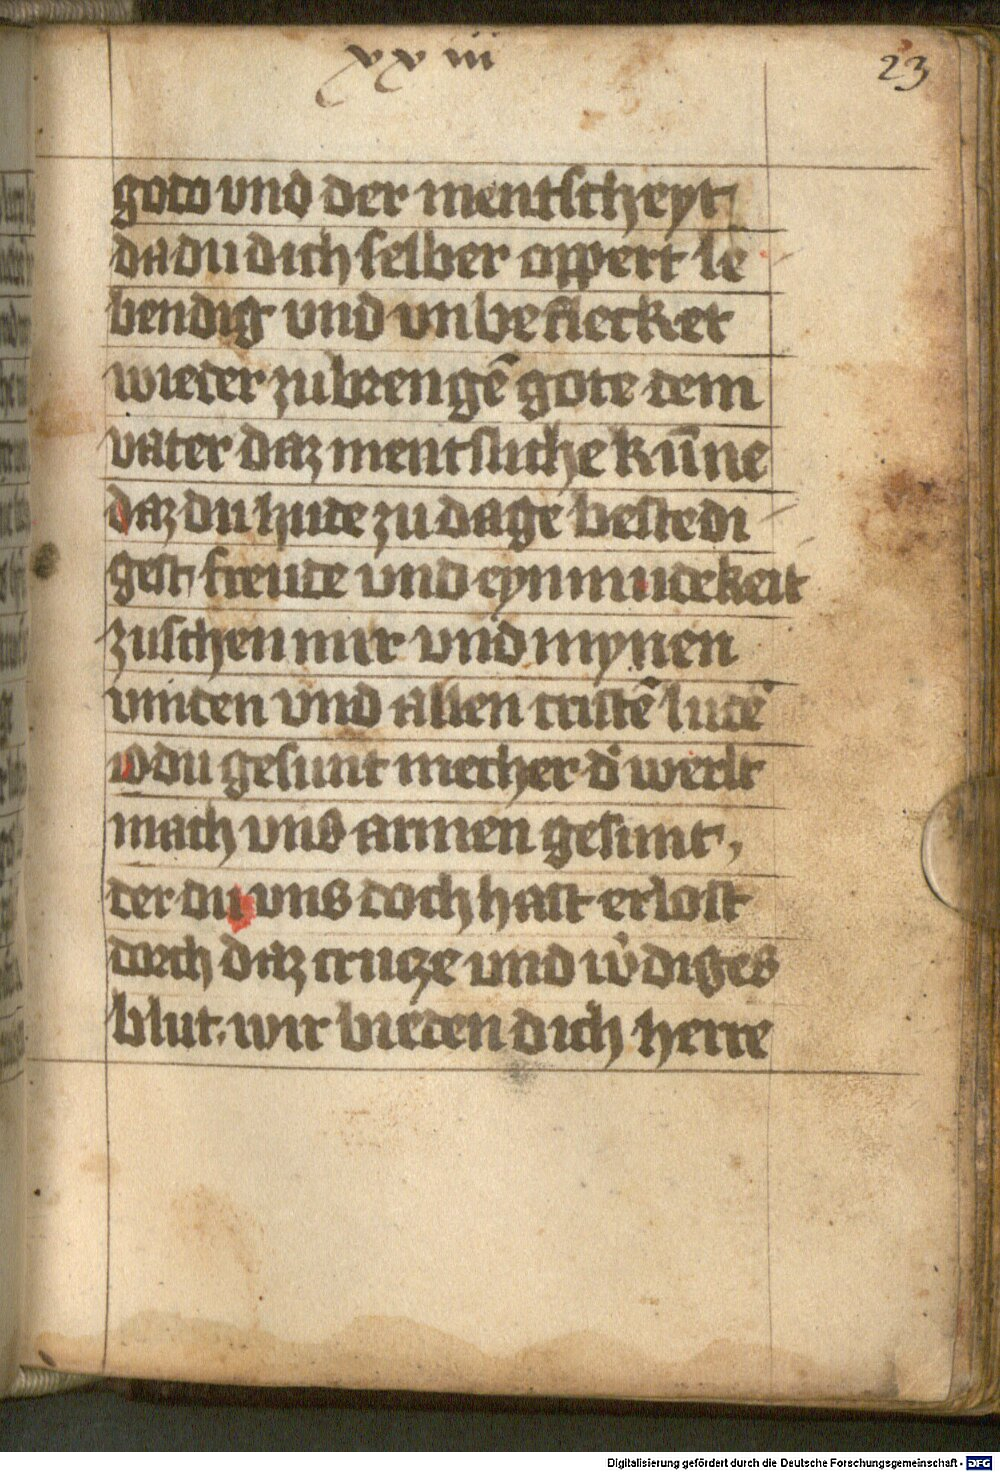 xxiii
23
gots vnd der mentscheyt
da du dich selber oppert le
bendig vnd vnbeflecket
wieder zubrengē gote dem
vater daz mentsliche kūne
daz du hute zu dage bestedi
gest freude vnd eynmudekeit
zuschen mir vnd mynen
vinden vnd allen cristē lutē
O du gesunt mecher d' werlt
mach vns armen gesunt,
der du vns doch hast erlost
dorch daz cruce vnd w'diges
blut. wir bieden dich herre
Digitalisierung gefördert durch die Deutsche Forschungsgemeinschaft - DFG